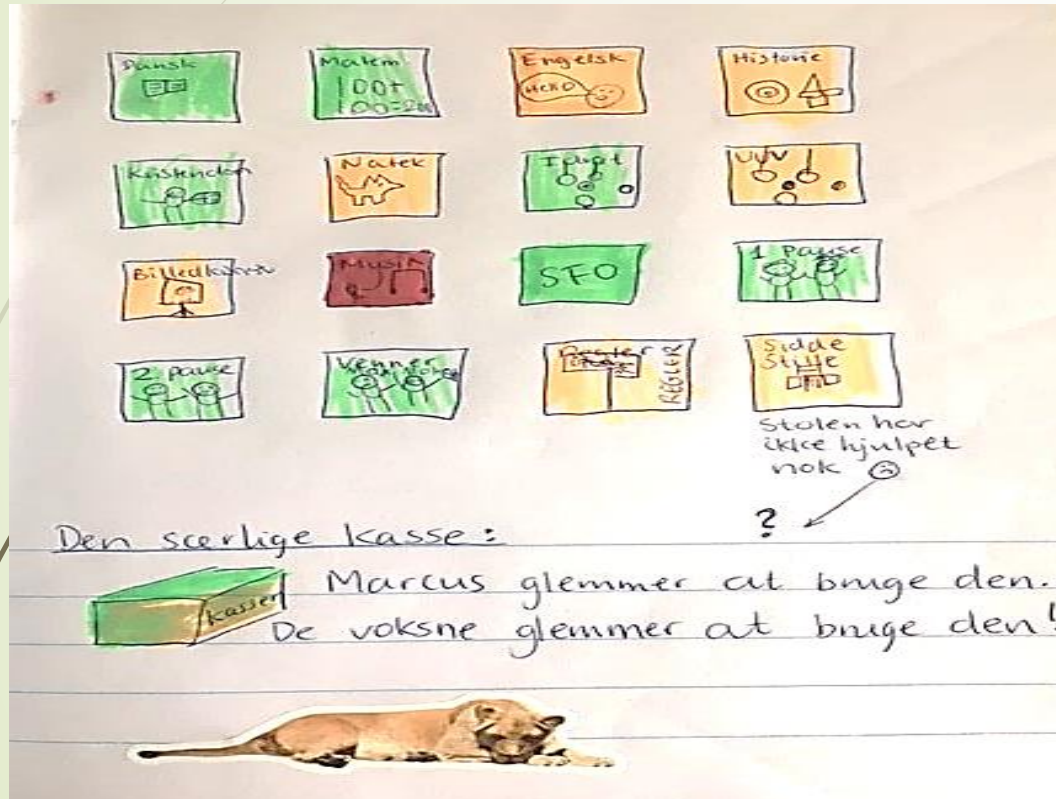 Dansk
Matem
100+
100=200
Engelsk
Historie
Natek
UUV
Musik
SFO
1 Pause
2 pause
Venner
REGLER
Sidde
Stille
Stolen har
ikke hjulpet
nok
?
Den særlige kasse:
kassen
Marcus glemmer at bruge den.
De voksne glemmer at bruge den!